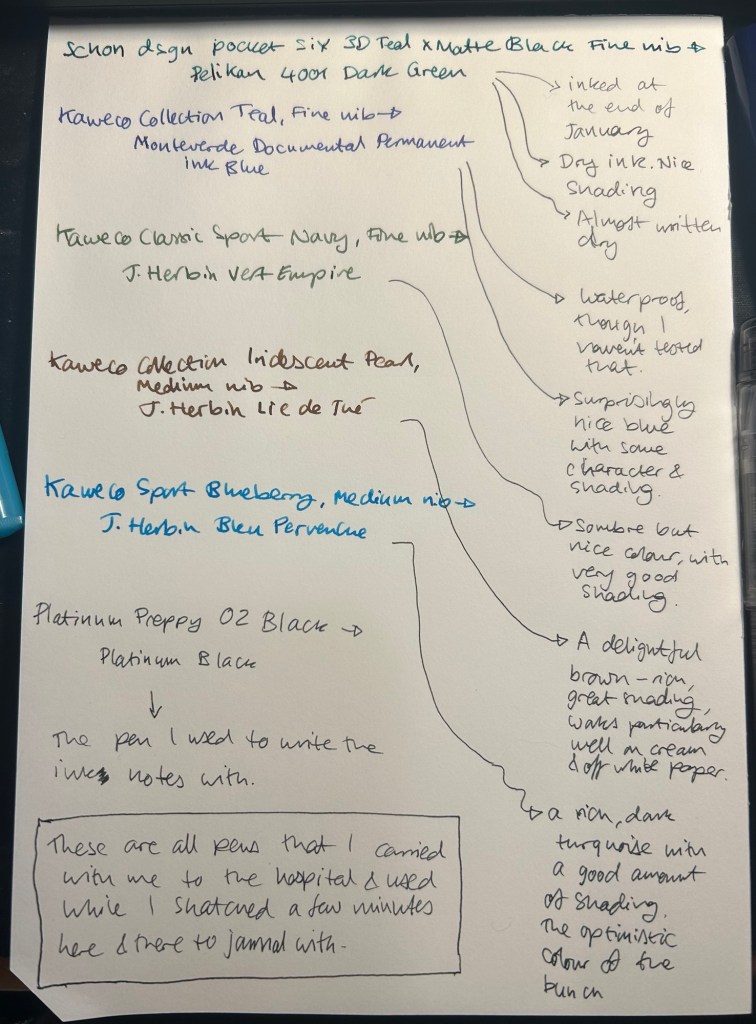 Schon dsgn pocket six 3D Teal x Matte Black Fine nib →
Pelikan 4001 Dark Green
inked at
the end of
January
Dry ink. Nice
shading
Almost written
dry
Kaweco Collection Teal, Fine nib →
Monteverde Documental Permanent
ink Blue
waterproof,
though I
haven't tested
that.
Surprisingly
nice blue
with some
character &
shading.
Kaweco Classic Sport Navy, Fine nib →
J. Herbin Vert Empire
Sombre but
nice colour, with
very good
shading.
Kaweco Collection Iridescent Pearl,
Medium nib →
J. Herbin Lie de Thé
A delightful
brown - rich,
great shading,
works particularly
well on cream
& off white paper.
Kaweco Sport Blueberry, Medium nib →
J. Herbin Bleu Pervenche
a rich, dark
turquoise with
a good amount
of shading.
The optimistic
colour of the
bunch
Platinum Preppy 02 Black →
Platinum Black
↓
The pen I used to write the
ink notes with.
These are all pens that I carried
with me to the hospital & used
while I snatched a few minutes
here & there to journal with.